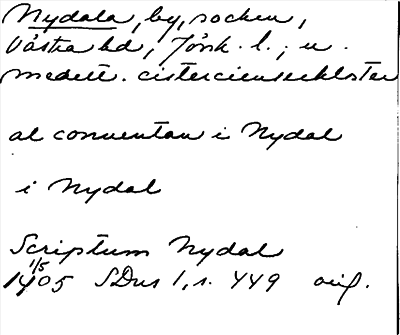 Nydala, by, socken,
Västra hd, Jönk. l.; u.
medelt. cistercienserkloster
al conuentan i Nydal
i Nydal
Scriptum Nydal
1/5
1405 SDns 1, s. 449 orig.